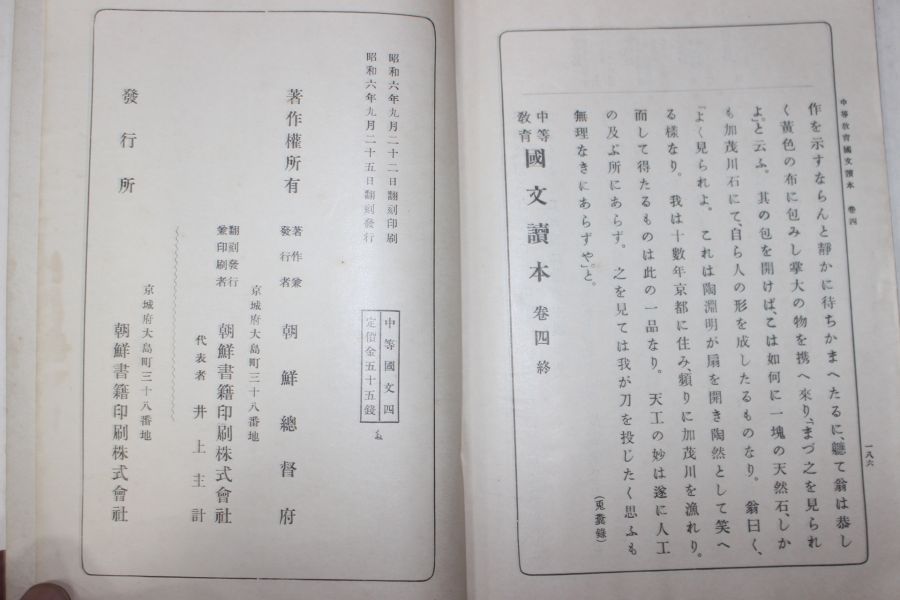 中等敎育國文讀本 卷四
一八六
作を示すならんと靜かに待ちかまへたるに、軈て翁は恭し
く黃色の布に包みし掌大の物を携へ來り、「まづ之を見られ
よ」と云ふ。其の包を開けば、こは如何に一塊の天然石、しか
も加茂川石にて、自ら人の形を成したるものなり。翁曰く、
「よく見られよ。これは陶淵明が扇を開き陶然として笑へ
る樣なり。我は十數年京都に住み、頻りに加茂川を漁れり。
而して得たるものは此の一品なり。天工の妙は遂に人工
の及ぶ所にあらず。之を見ては我が刀を投じたく思ふも
無理なきにあらずや」と。
(兎糞錄)
中等敎育 國文讀本 卷四 終
昭和六年九月二十二日翻刻印刷
昭和六年九月二十五日翻刻發行
中等國文四
定價金五十五錢
著作權所有
著作兼發行者 朝鮮總督府
京城府大島町三十八番地
翻刻發行兼印刷者 朝鮮書籍印刷株式會社
代表者 井上主計
京城府大島町三十八番地
發行所 朝鮮書籍印刷株式會社